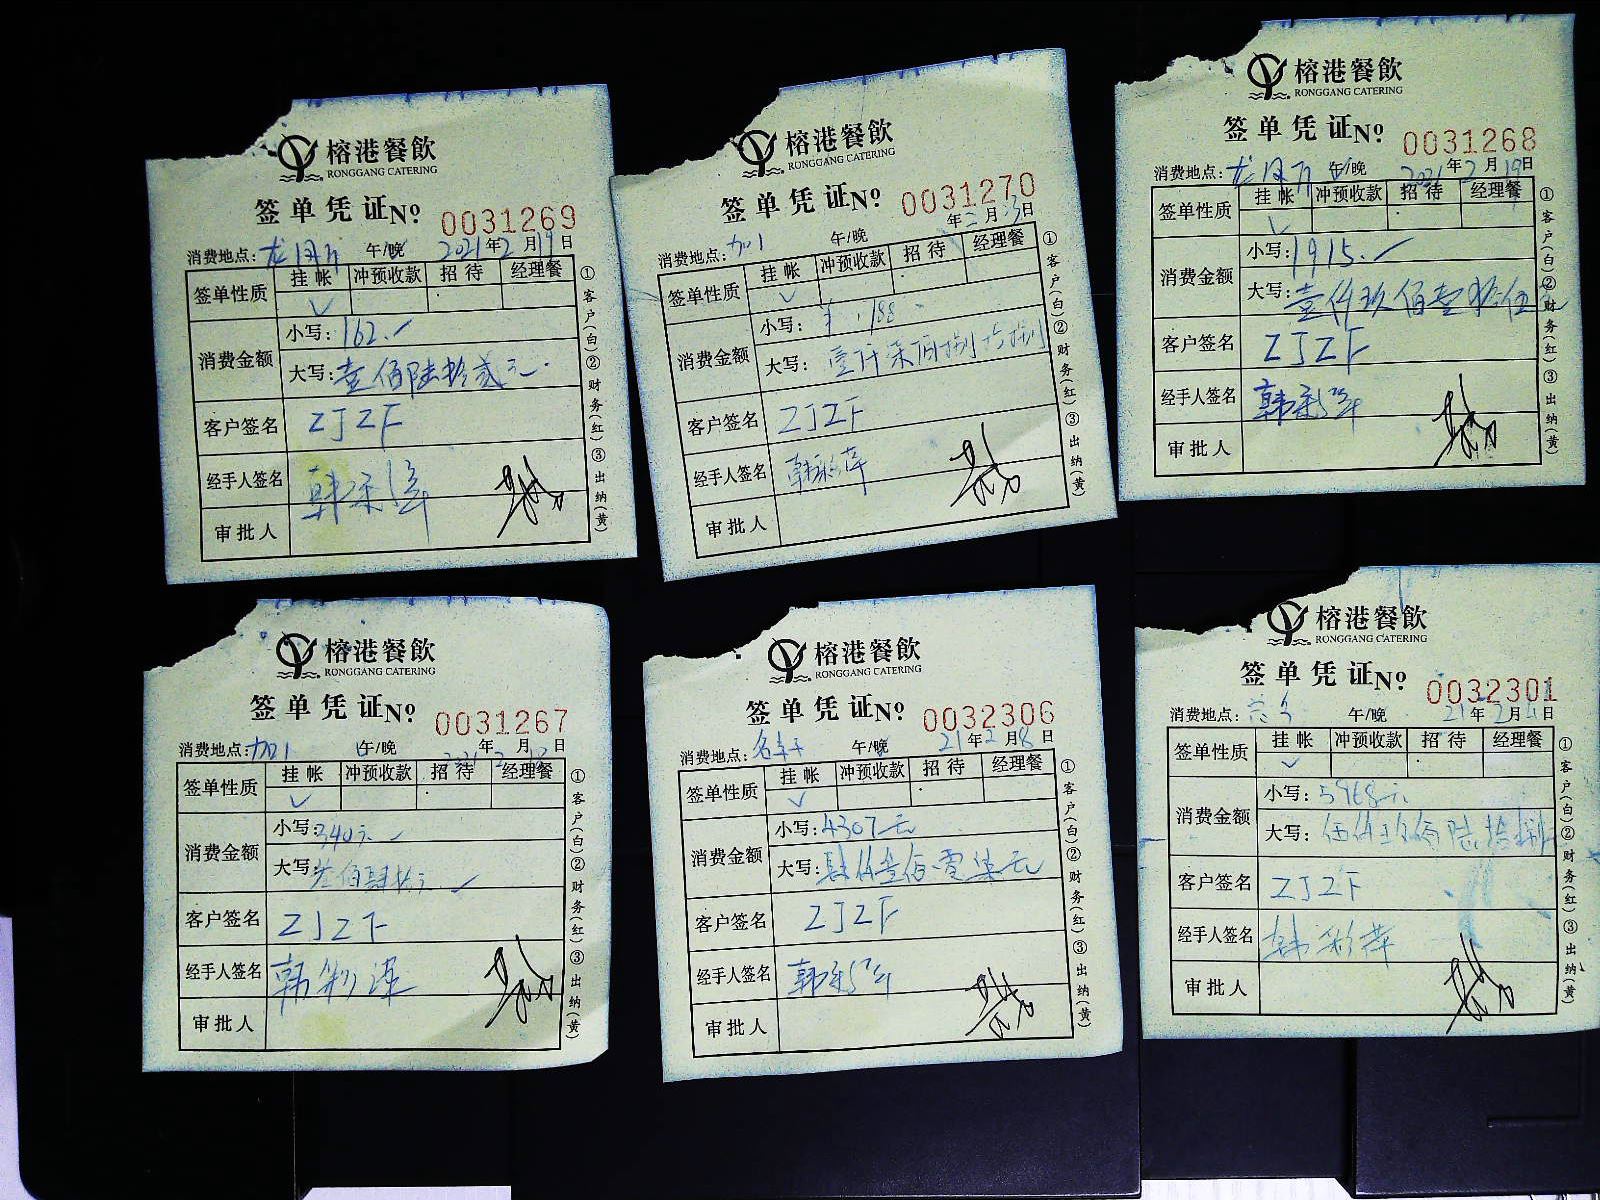 榕港餐飲
RONGGANG CATERING
签单凭证№ 0031269
消费地点: 龙凤厅 午/晚 2021年2月19日
签单性质 挂帐 冲预收款 招待 经理餐
✓
消费金额 小写: 162.
大写: 壹佰陆拾贰元
客户签名 ZJZF
经手人签名 韩
审批人
①客户(白)②财务(红)③出纳(黄)
榕港餐飲
RONGGANG CATERING
签单凭证№ 0031270
消费地点: 加1 午/晚 年二月3日
签单性质 挂帐 冲预收款 招待 经理餐
✓
消费金额 小写: ¥
大写: 壹仟柒佰捌拾捌
客户签名 ZJZF
经手人签名 韩彩萍
审批人
①客户(白)②财务(红)③出纳(黄)
榕港餐飲
RONGGANG CATERING
签单凭证№ 0031268
消费地点: 龙凤厅 午/晚 2021年2月19日
签单性质 挂帐 冲预收款 招待 经理餐
✓
消费金额 小写: 1915.
大写: 壹仟玖佰壹拾伍元
客户签名 ZJZF
经手人签名 韩
审批人
①客户(白)②财务(红)③出纳(黄)
榕港餐飲
RONGGANG CATERING
签单凭证№ 0031267
消费地点: 加1 午/晚 年 月 日
签单性质 挂帐 冲预收款 招待 经理餐
✓
消费金额 小写: 340元
大写: 叁佰肆拾元
客户签名 ZJZF
经手人签名 韩彩萍
审批人
①客户(白)②财务(红)③出纳(黄)
榕港餐飲
RONGGANG CATERING
签单凭证№ 0032306
消费地点: 午/晚 21年2月8日
签单性质 挂帐 冲预收款 招待 经理餐
✓
消费金额 小写: 4307元
大写: 肆仟叁佰零柒元
客户签名 ZJZF
经手人签名 韩
审批人
①客户(白)②财务(红)③出纳(黄)
榕港餐飲
RONGGANG CATERING
签单凭证№ 0032301
消费地点: 午/晚 21年2月 日
签单性质 挂帐 冲预收款 招待 经理餐
✓
消费金额 小写: 5968元
大写: 伍仟玖佰陆拾捌元
客户签名 ZJZF
经手人签名 韩彩萍
审批人
①客户(白)②财务(红)③出纳(黄)